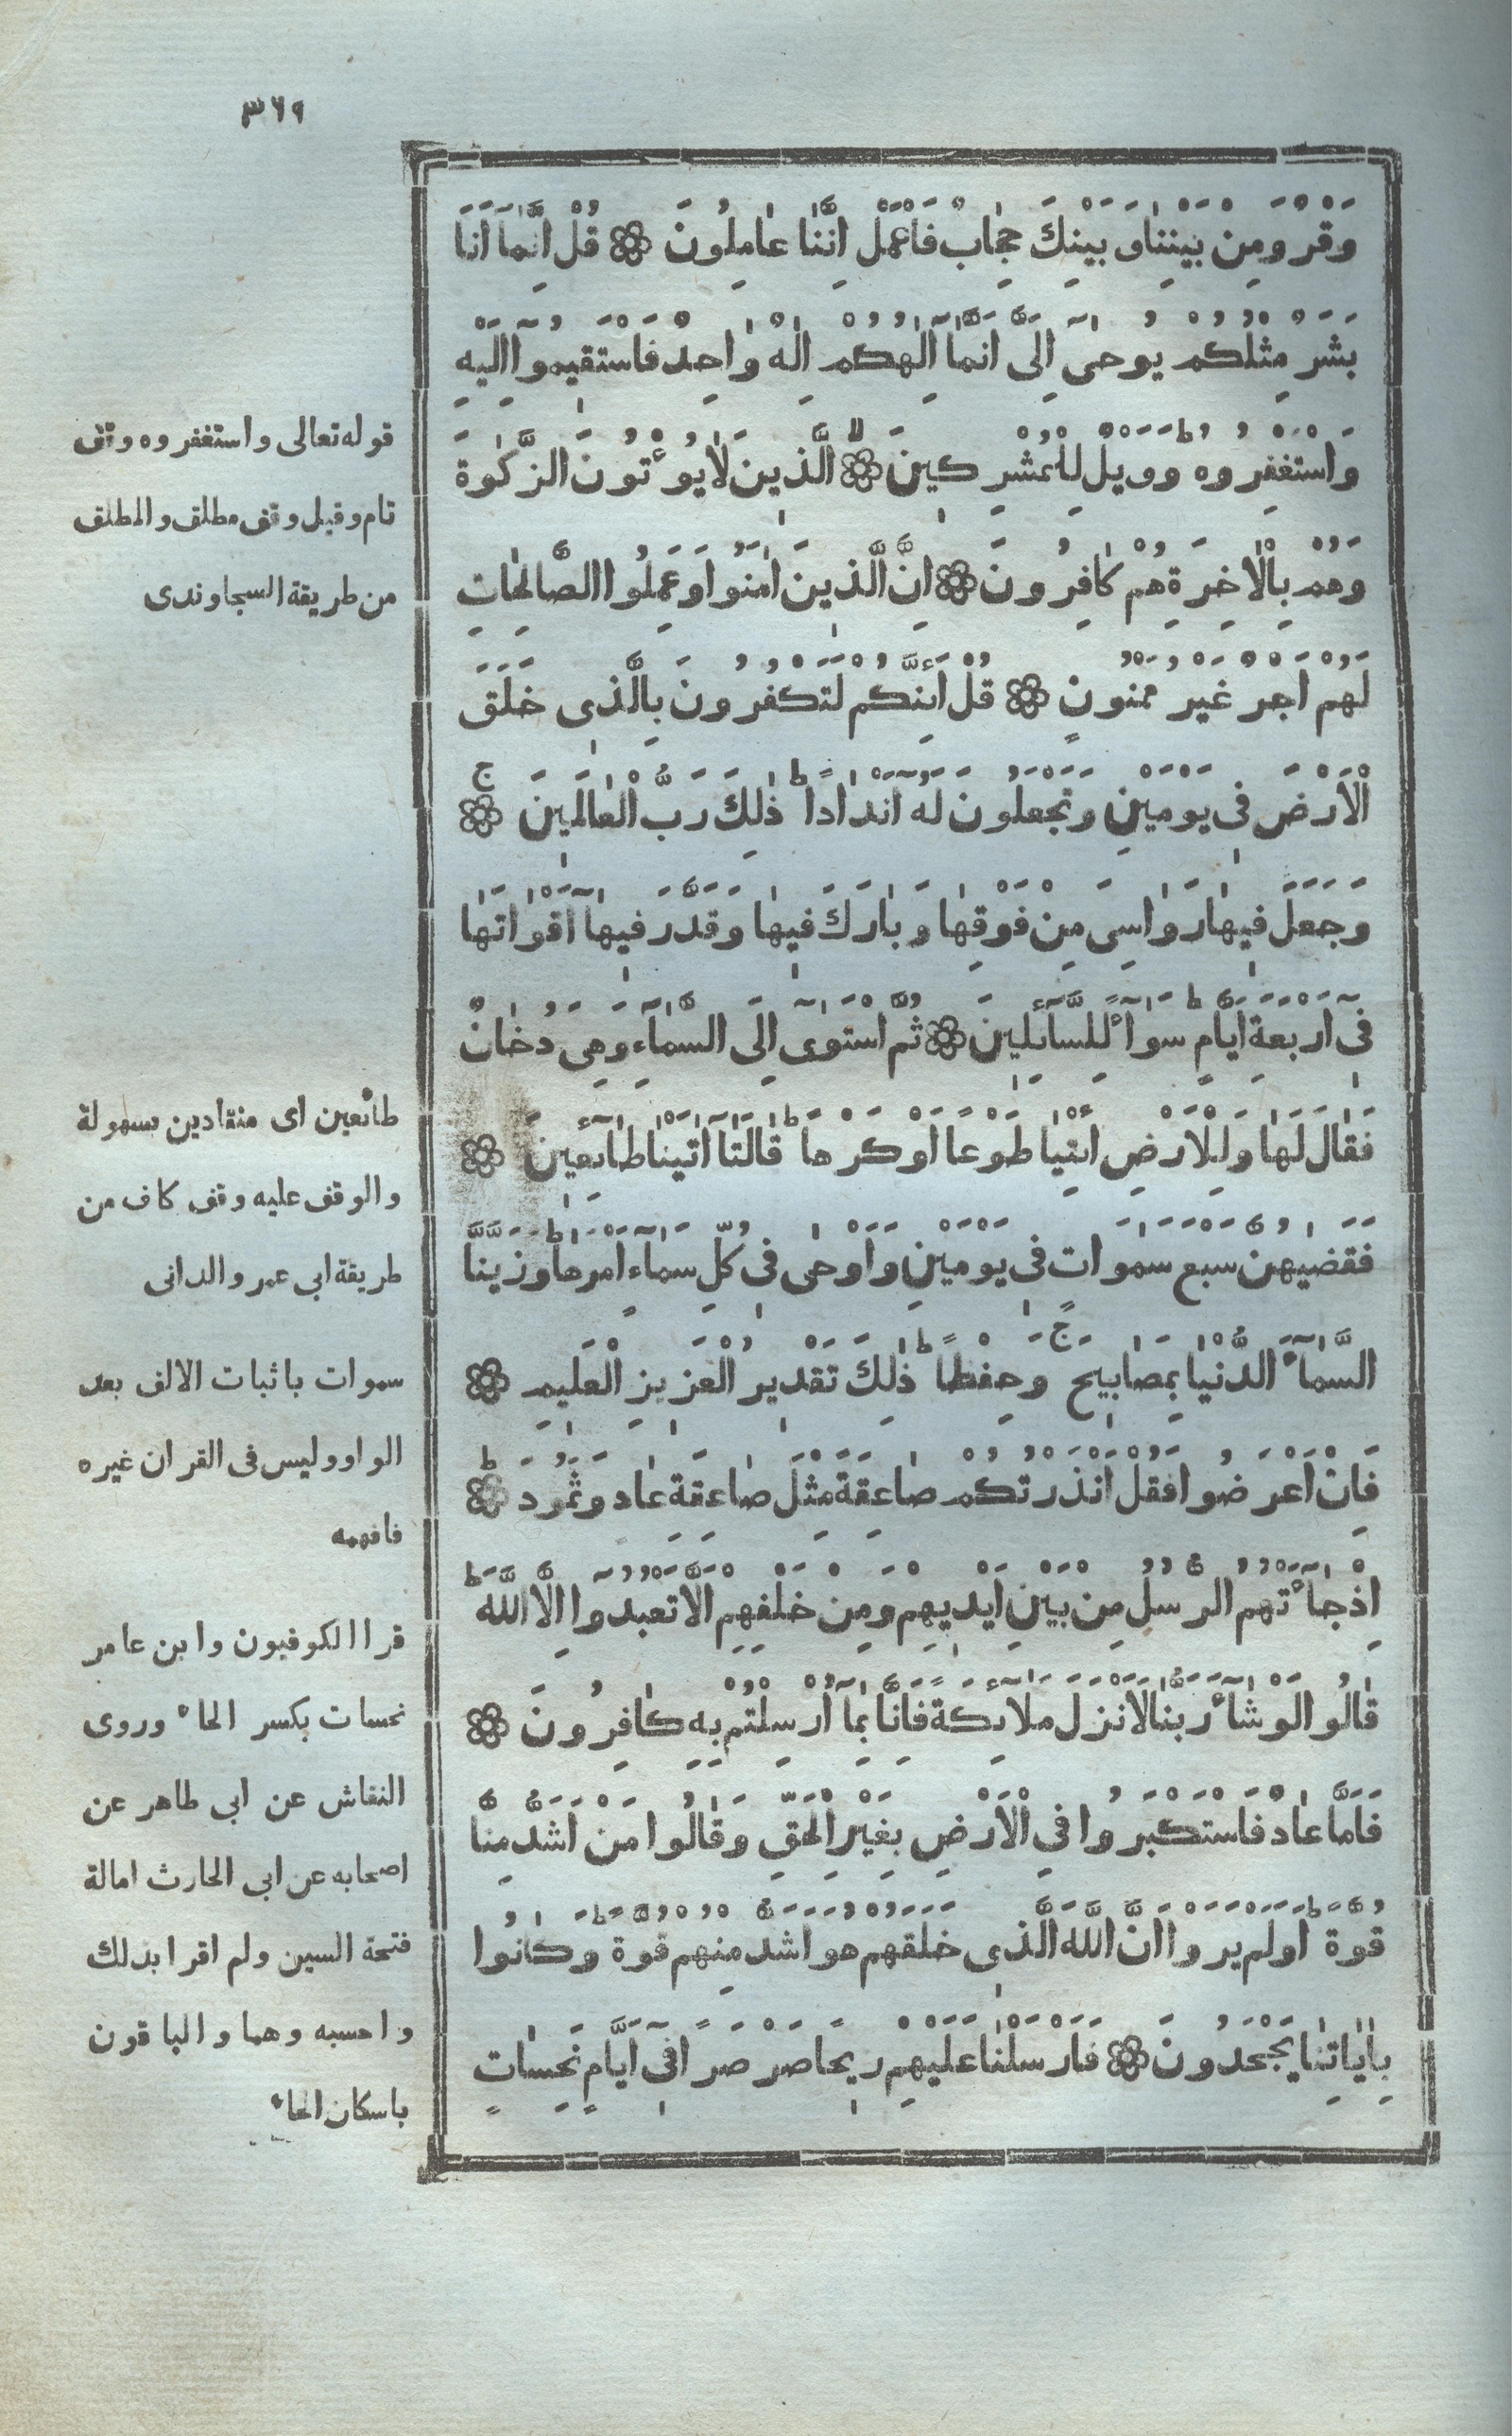 ٣٦٩
وَقْرٌ وَمِنْ بَيْنِنَا وَبَيْنِكَ حِجَابٌ فَاعْمَلْ اِنَّنَا عَامِلُونَ ۞ قُلْ اِنَّمَٓا اَنَا
بَشَرٌ مِثْلُكُمْ يُوحٰٓى اِلَىَّ اَنَّمَٓا اِلٰهُكُمْ اِلٰهٌ وَاحِدٌ فَاسْتَقِيمُٓوا اِلَيْهِ
وَاسْتَغْفِرُوهُ ط وَوَيْلٌ لِلْمُشْرِكِينَ ۞ لا اَلَّذِينَ لَا يُؤْتُونَ الزَّكٰوةَ
وَهُمْ بِالْاٰخِرَةِ هُمْ كَافِرُونَ ۞ اِنَّ الَّذِينَ اٰمَنُوا وَعَمِلُوا الصَّالِحَاتِ
لَهُمْ اَجْرٌ غَيْرُ مَمْنُونٍ ۞ قُلْ اَئِنَّكُمْ لَتَكْفُرُونَ بِالَّذِى خَلَقَ
الْاَرْضَ فِى يَوْمَيْنِ وَتَجْعَلُونَ لَهُٓ اَنْدَادًا ط ذٰلِكَ رَبُّ الْعَالَمِينَ ۞ ج
وَجَعَلَ فِيهَا رَوَاسِىَ مِنْ فَوْقِهَا وَبَارَكَ فِيهَا وَقَدَّرَ فِيهَٓا اَقْوَاتَهَا
فِٓى اَرْبَعَةِ اَيَّامٍ ط سَوَٓاءً لِلسَّٓائِلِينَ ۞ ثُمَّ اسْتَوٰٓى اِلَى السَّمَٓاءِ وَهِىَ دُخَانٌ
فَقَالَ لَهَا وَلِلْاَرْضِ ائْتِيَا طَوْعًا اَوْ كَرْهًا ط قَالَتَٓا اَتَيْنَا طَٓائِعِينَ ۞
فَقَضٰيهُنَّ سَبْعَ سَمٰوَاتٍ فِى يَوْمَيْنِ وَاَوْحٰى فِى كُلِّ سَمَٓاءٍ اَمْرَهَا ط وَزَيَّنَّا
السَّمَٓاءَ الدُّنْيَا بِمَصَابِيحَ ج وَحِفْظًا ط ذٰلِكَ تَقْدِيرُ الْعَزِيزِ الْعَلِيمِ ۞
فَاِنْ اَعْرَضُوا فَقُلْ اَنْذَرْتُكُمْ صَاعِقَةً مِثْلَ صَاعِقَةِ عَادٍ وَثَمُودَ ۞ ط
اِذْ جَٓاءَتْهُمُ الرُّسُلُ مِنْ بَيْنِ اَيْدِيهِمْ وَمِنْ خَلْفِهِمْ اَلَّا تَعْبُدُٓوا اِلَّا اللّٰهَ ط
قَالُوا لَوْ شَٓاءَ رَبُّنَا لَاَنْزَلَ مَلٰٓائِكَةً فَاِنَّا بِمَٓا اُرْسِلْتُمْ بِهِ كَافِرُونَ ۞
فَاَمَّا عَادٌ فَاسْتَكْبَرُوا فِى الْاَرْضِ بِغَيْرِ الْحَقِّ وَقَالُوا مَنْ اَشَدُّ مِنَّا
قُوَّةً ط اَوَلَمْ يَرَوْا اَنَّ اللّٰهَ الَّذِى خَلَقَهُمْ هُوَ اَشَدُّ مِنْهُمْ قُوَّةً ط وَكَانُوا
بِاٰيَاتِنَا يَجْحَدُونَ ۞ فَاَرْسَلْنَا عَلَيْهِمْ رِيحًا صَرْصَرًا فِٓى اَيَّامٍ نَحِسَاتٍ
قوله تعالى واستغفروه وقف
تام وقيل وقف مطلق والمطلق
من طريقة السجاوندى
طائعين اى منقادين بسهولة
والوقف عليه وقف كاف من
طريقة ابى عمر والدانى
سموات باثبات الالف بعد
الواو وليس فى القران غيره
فافهمه
قرا الكوفيون وابن عامر
نحسات بكسر الحاء وروى
النقاش عن ابى طاهر عن
اصحابه عن ابى الحارث امالة
فتحة السين ولم اقرا بذلك
واحسبه وهما والباقون
باسكان الحاء